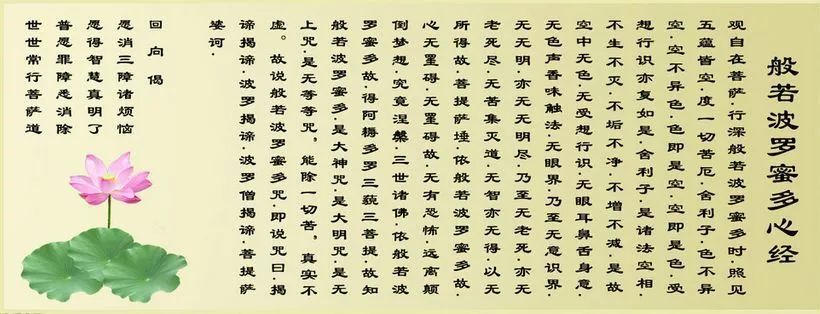 般若波罗蜜多心经
观自在菩萨·行深般若波罗蜜多时·照见
五蕴皆空·度一切苦厄·舍利子·色不异
空·空不异色·色即是空·空即是色·受
想行识亦复如是·舍利子·是诸法空相·
不生不灭·不垢不净·不增不减·是故
空中无色·无受想行识·无眼耳鼻舌身意·
无色声香味触法·无眼界·乃至无意识界·
无无明·亦无无明尽·乃至无老死·亦无
老死尽·无苦集灭道·无智亦无得·以无
所得故·菩提萨埵·依般若波罗蜜多故·
心无罣碍·无罣碍故·无有恐怖·远离颠
倒梦想·究竟涅槃·三世诸佛·依般若波
罗蜜多故·得阿耨多罗三藐三菩提·故知
般若波罗蜜多·是大神咒·是大明咒·是无
上咒·是无等等咒，能除一切苦，真实不
虚。故说般若波罗蜜多咒·即说咒曰·揭
谛揭谛·波罗揭谛·波罗僧揭谛·菩提萨
婆诃·
回向偈
愿消三障诸烦恼
愿得智慧真明了
普愿罪障悉消除
世世常行菩萨道